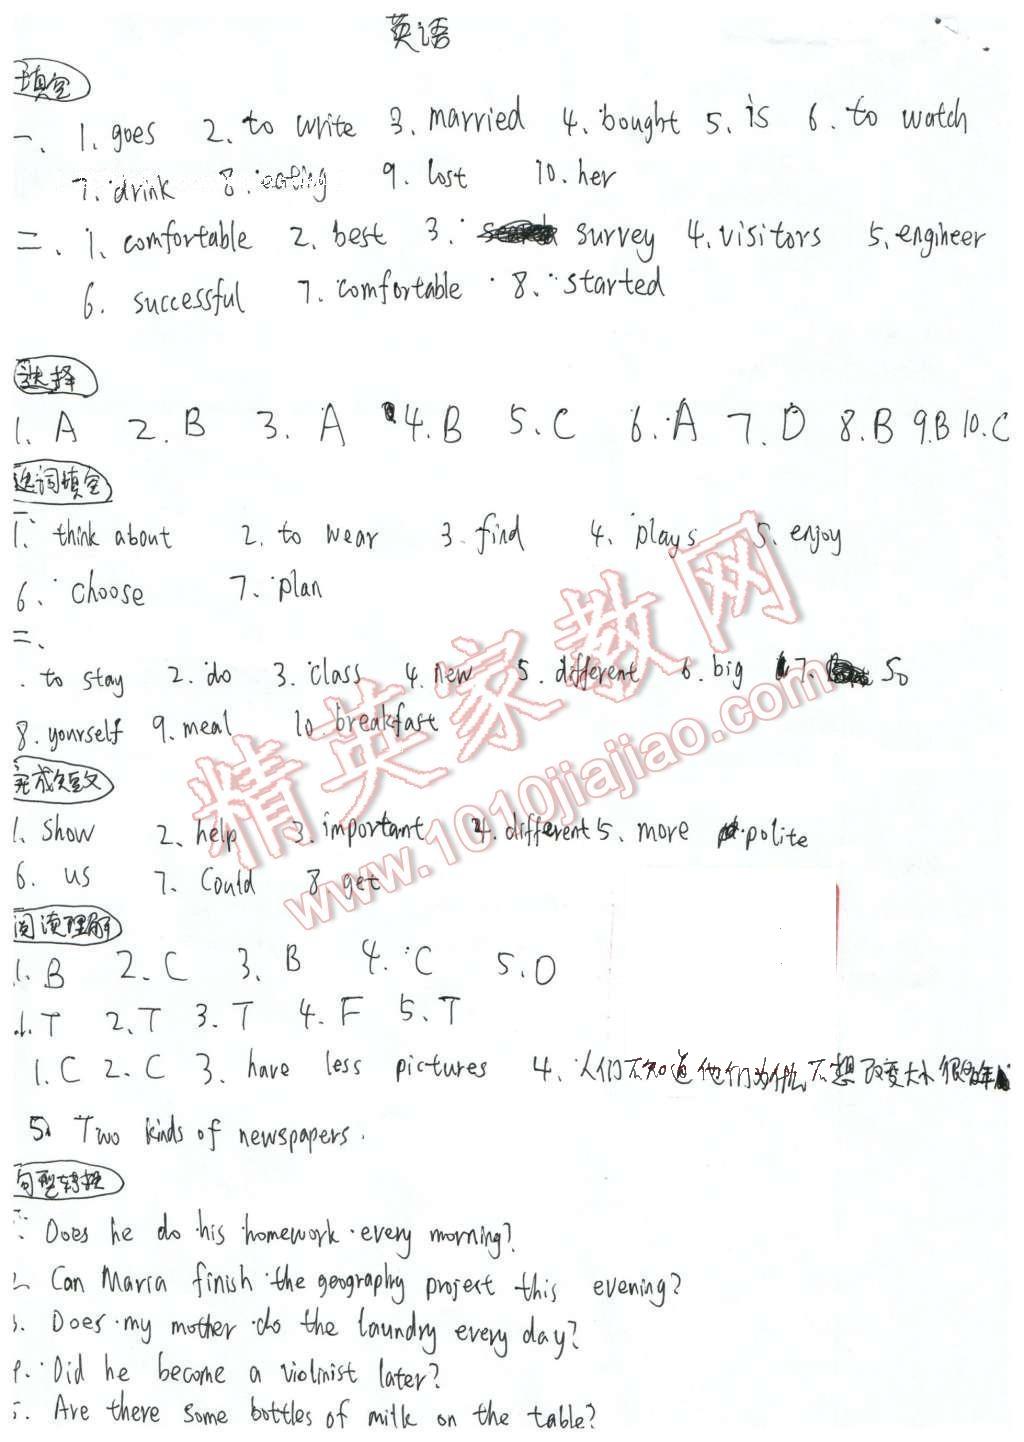 英语
填空
一、 1. goes 2. to write 3. married 4. bought 5. is 6. to watch
7. drink 8. eating 9. lost 10. her
二、 1. comfortable 2. best 3. survey 4. visitors 5. engineer
6. successful 7. comfortable 8. started
选择
1. A 2. B 3. A 4. B 5. C 6. A 7. D 8. B 9. B 10. C
选词填空
一、
1. think about 2. to wear 3. find 4. plays 5. enjoy
6. choose 7. plan
二、
. to stay 2. do 3. class 4. new 5. different 6. big 7. so
8. yourself 9. meal 10. breakfast
完成短文
1. show 2. help 3. important 4. different 5. more polite
6. us 7. Could 8. get
阅读理解
1. B 2. C 3. B 4. C 5. D
1. T 2. T 3. T 4. F 5. T
1. C 2. C 3. have less pictures 4. 人们不知道他们为什么不想改变大小很多年
5. Two kinds of newspapers.
句型转换
Does he do his homework every morning?
2. Can Maria finish the geography project this evening?
3. Does my mother do the laundry every day?
4. Did he become a violinist later?
5. Are there some bottles of milk on the table?
精英家教网
www.1010jiajiao.com